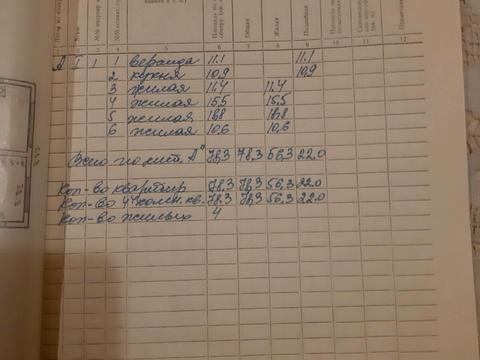 Этаж
Площадь по
обмеру
Общая
Жилая
Подсобная
1 2 3 4 5 6 7 8 9 10 11 12
А I 1 1 веранда 11.1 11.1
2 кухня 10,9 10,9
3 жилая 11,4 11,4
4 жилая 15,5 15,5
5 жилая 18,8 18,8
6 жилая 10,6 10,6
Всего по лит. А" 78,3 78,3 56,3 22.0
Кол-во квартир 78.3 78,3 56,3 22.0
Кол-во 4х комн. кв. 78.3 78,3 56,3 22.0
Кол-во жилых 4